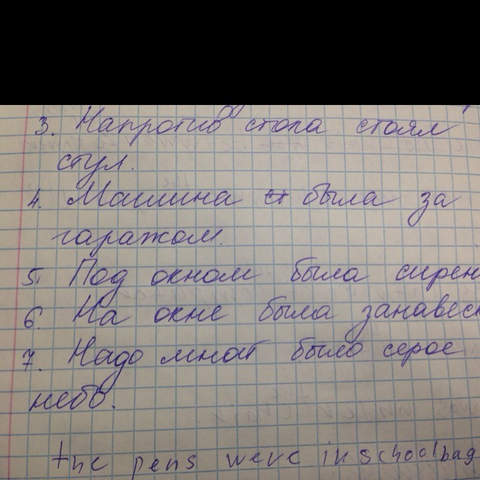 3. Напротив стола стоял
стул.
4. Машина была за
гаражом.
5. Под окном была сирен
6. На окне была занавеск
7. Надо мной было серое
небо.
the pens were in schoolbag